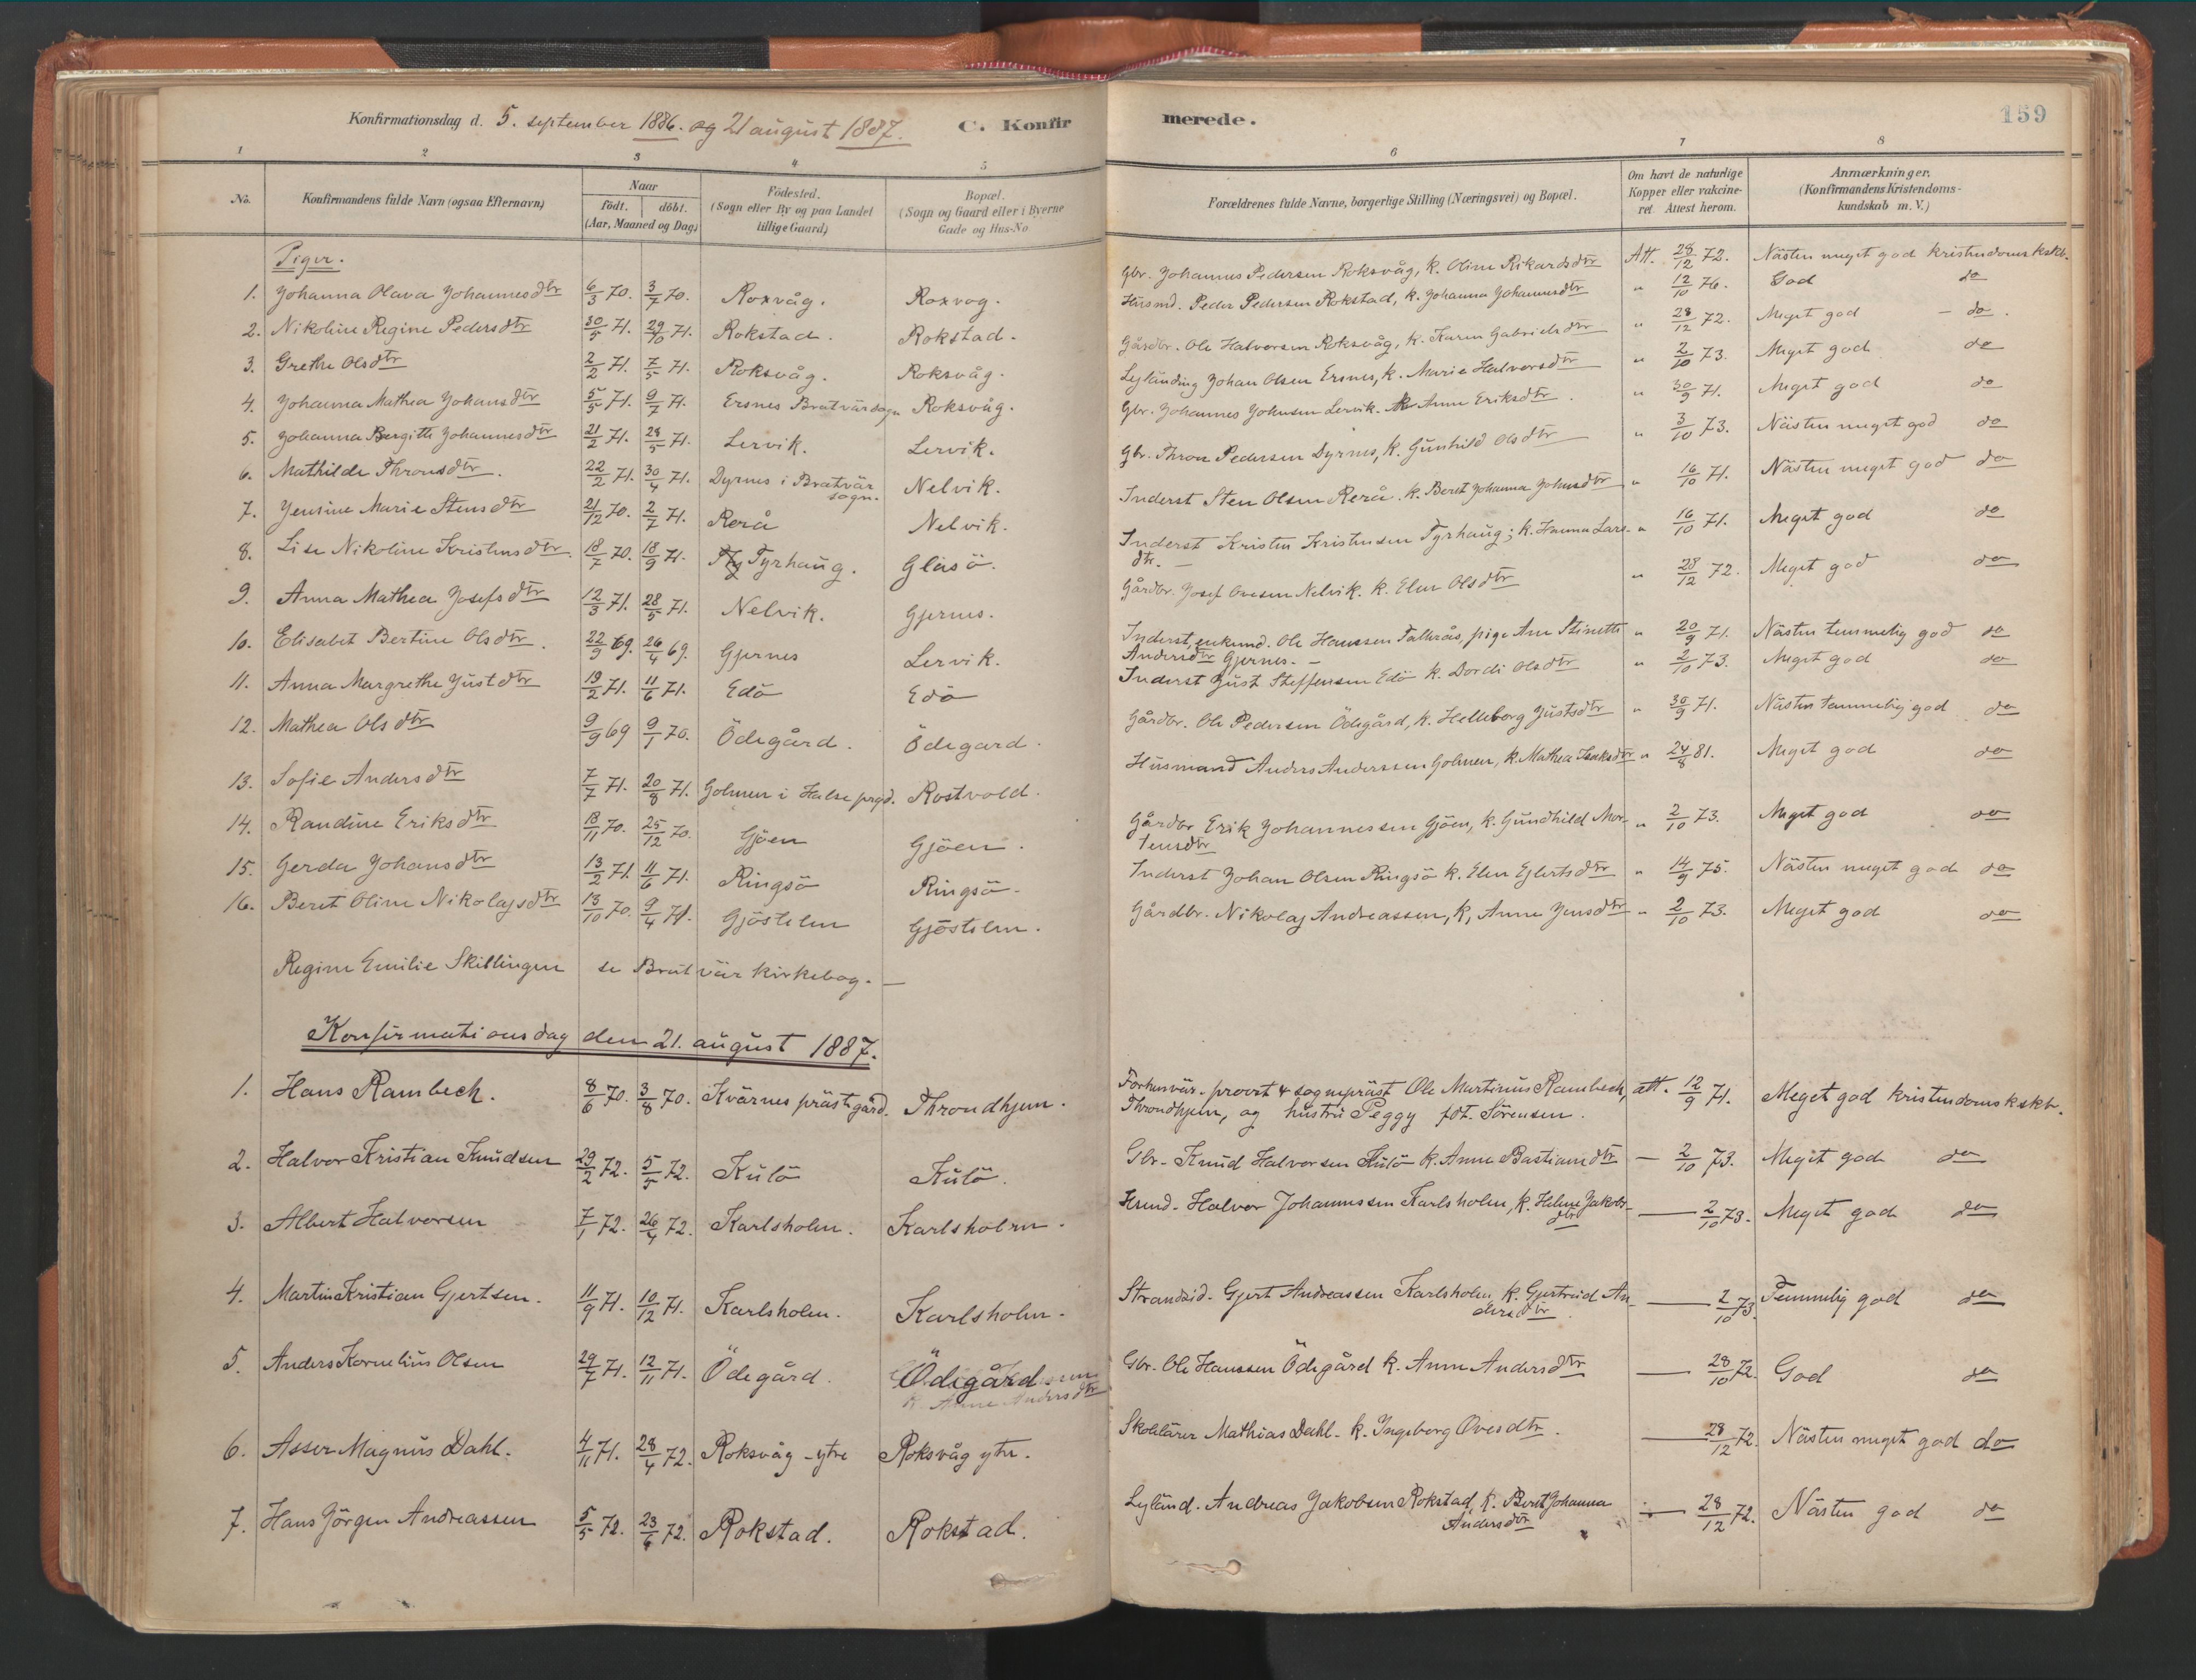 Konfirmationsdag d. 5. september 1886. og 21 august 1887. C. Konfirmerede. 159
1 2 3 4 5 6 7 8
No. Konfirmandens fulde Navn (ogsaa Efternavn) Naar født. døbt. (Aar, Maaned og Dag) Fødested. (Sogn eller By og paa Landet tillige Gaard) Bopæl. (Sogn og Gaard eller i Byerne Gade og Hus-No Forældrenes fulde Navne, borgerlige Stilling (Næringsvei) og Bopæl. Om havt de naturlige Kopper eller vakcineret Attest herom. Anmærkninger. (Konfirmandens Kristendomskundskab m. V.)
Piger.
1. Johanna Olava Johannesdtr 6/3 70. 3/7 70. Roxvåg. Roxvog. Gbr. Johannes Pedersen Roksvåg, k. Oline Rikardsdtr Att. 28/12 72. Nästen meget god kristendomskskb.
2. Nikoline Regine Pedersdtr 30/5 71. 29/10 71. Rokstad. Rokstad. Husmd. Peder Pedersen Rokstad, k. Johanna Johannesdtr " 12/10 76. God do
3. Grethe Olsdtr 2/2 71. 7/5 71. Roksvåg. Roksvåg. Gårdbr. Ole Halvorsen Roksvåg, k. Karen Gabrielsdtr " 28/12 72. Meget god - do.
4. Johanna Mathea Johansdtr 5/5 71. 9/7 71. Ersnes Bratvärsogn Roksvåg. Leyländing Johan Olsen Ersnes, k. Marie Halvorsdtr " 2/10 73. Meget god do
5. Johanna Bergitte Johannesdtr 21/2 71. 28/5 71. Lervik. Lervik. Gbr. Johannes Johnsen Lervik. k Anne Eriksdtr. " 30/9 71. Meget god do
6. Mathilde Thronsdtr. 22/2 71. 30/4 71. Dyrnes i Bratvär sogn. Nelvik. Gbr. Thron Pedersen Dyrnes, k. Gunhild Olsdtr " 3/10 73. Nästen meget god do
7. Jensine Marie Stensdtr 21/12 70. 2/7 71. Rerå Nelvik. Inderst Sten Olsen Rerå. k. Beret Johanna Johnsdtr " 16/10 71. Nästen meget god do
8. Lise Nikoline Kristensdtr. 18/7 70. 18/9 71. Tyrhaug. Glasö. Inderst Kristen Kristensen Tyrhaug; k. Hanna Lars- " 16/10 71. Meget god do
dtr. —
9. Anna Mathea Josefsdtr 12/3 71. 28/5 71. Nelvik. Gjernes. Gårdbr. Josef Ovesen Nelvik. k. Elen Olsdtr " 28/12 72. Meget god do
10. Elisabet Bertine Olsdtr. 22/9 69. 26/4 69. Gjernes Lervik. Inderst, enkemd. Ole Hanssen Talkrås, pige Ane Stinette " 20/9 71. Nästen temmelig god do
Andersdtr Gjernes. —
11. Anna Margrethe Justdtr 19/2 71. 11/6 71. Edö Edö Inderst Just Steffensen Edö k. Dordi Olsdtr " 2/10 73. Meget god do
12. Mathea Olsdtr 9/9 69 9/1 70. Ödegård. Ödegard. Gårdbr. Ole Pedersen Ödegård, k. Helleborg Justsdtr " 30/9 71. Nästen temmelig god do
13. Sofie Andersdtr 7/7 71. 20/8 71. Golmen i Halse prgd. Rostvold. Husmand Anders Anderssen Golmen, k. Mathea Isaksdtr " 24/8 81. Meget god do
14. Randine Eriksdtr 18/11 70. 25/12 70. Gjöen Gjöen. Gårdbr Erik Johannessen Gjöen, k. Gundhild Mor- " 2/10 73. Meget god do
tensdtr
15. Gerda Johansdtr 13/2 71. 11/6 71. Ringsö Ringsö. Inderst Johan Olsen Ringsö k. Elen Ejlertsdtr " 14/9 75. Nästen meget god do
16. Beret Oline Nikolajsdtr 13/10 70. 9/4 71. Gjöstelen Gjöstelen. Gårdbr. Nikolaj Andreassen, k, Anne Jensdtr " 2/10 73. Meget god do
Regine Emilie Skillingen se Bratvär kirkebog. —
Konfirmationsdag den 21. august 1887.
1. Hans Rambeck. 8/6 70. 3/8 70. Kvärnes prästgård. Throndhjem. Forhenvär. provst & sognepräst Ole Martinus Rambech, att. 12/9 71. Meget god kristendomskskb.
Throndhjem, og hustru Peggy föt. Sörensen.
2. Halvor Kristian Knudsen 29/2 72. 5/5 72. Kulö Kulö. Gbr. Knud Halvorsen Kulö k. Anne Bastiansdtr — 2/10 73. Meget god do
3. Albert Halvorsen 7/1 72. 26/4 72. Karlsholm. Karlsholm. Hsmd. Halvor Johannessen Karlsholm, k. Helene Jakobs- — 2/10 73. Meget god do
dtr
4. Martin Kristian Gjertsen. 11/9 71. 10/12 71. Karlsholm. Karlsholm. Strandsid. Gjert Andreassen Karlsholm, k. Gjertrud An- — 2/10 73. Temmelig god do
dersdtr.
5. Anders Kornelius Olsen 29/7 71. 12/11 71. Ödegård. Ödegård Gbr. Ole Hanssen Ödegård k. Anne Andersdtr — 28/10 72. God do
k. Anne Andersdtr
6. Asser Magnus Dahl. 4/11 71. 28/4 72. Roksvåg - ytre Roksvåg ytre. Skolelärer Mathias Dahl. k. Ingeborg Ovesdtr. — 28/12 72. Nästen meget god do
7. Hans Jörgen Andreassen 5/5 72. 23/6 72. Rokstad. Rokstad. Leyländ. Andreas Jakobsen Rokstad, k. Beret Johanna — 28/12 72. Nästen god do
Andersdtr